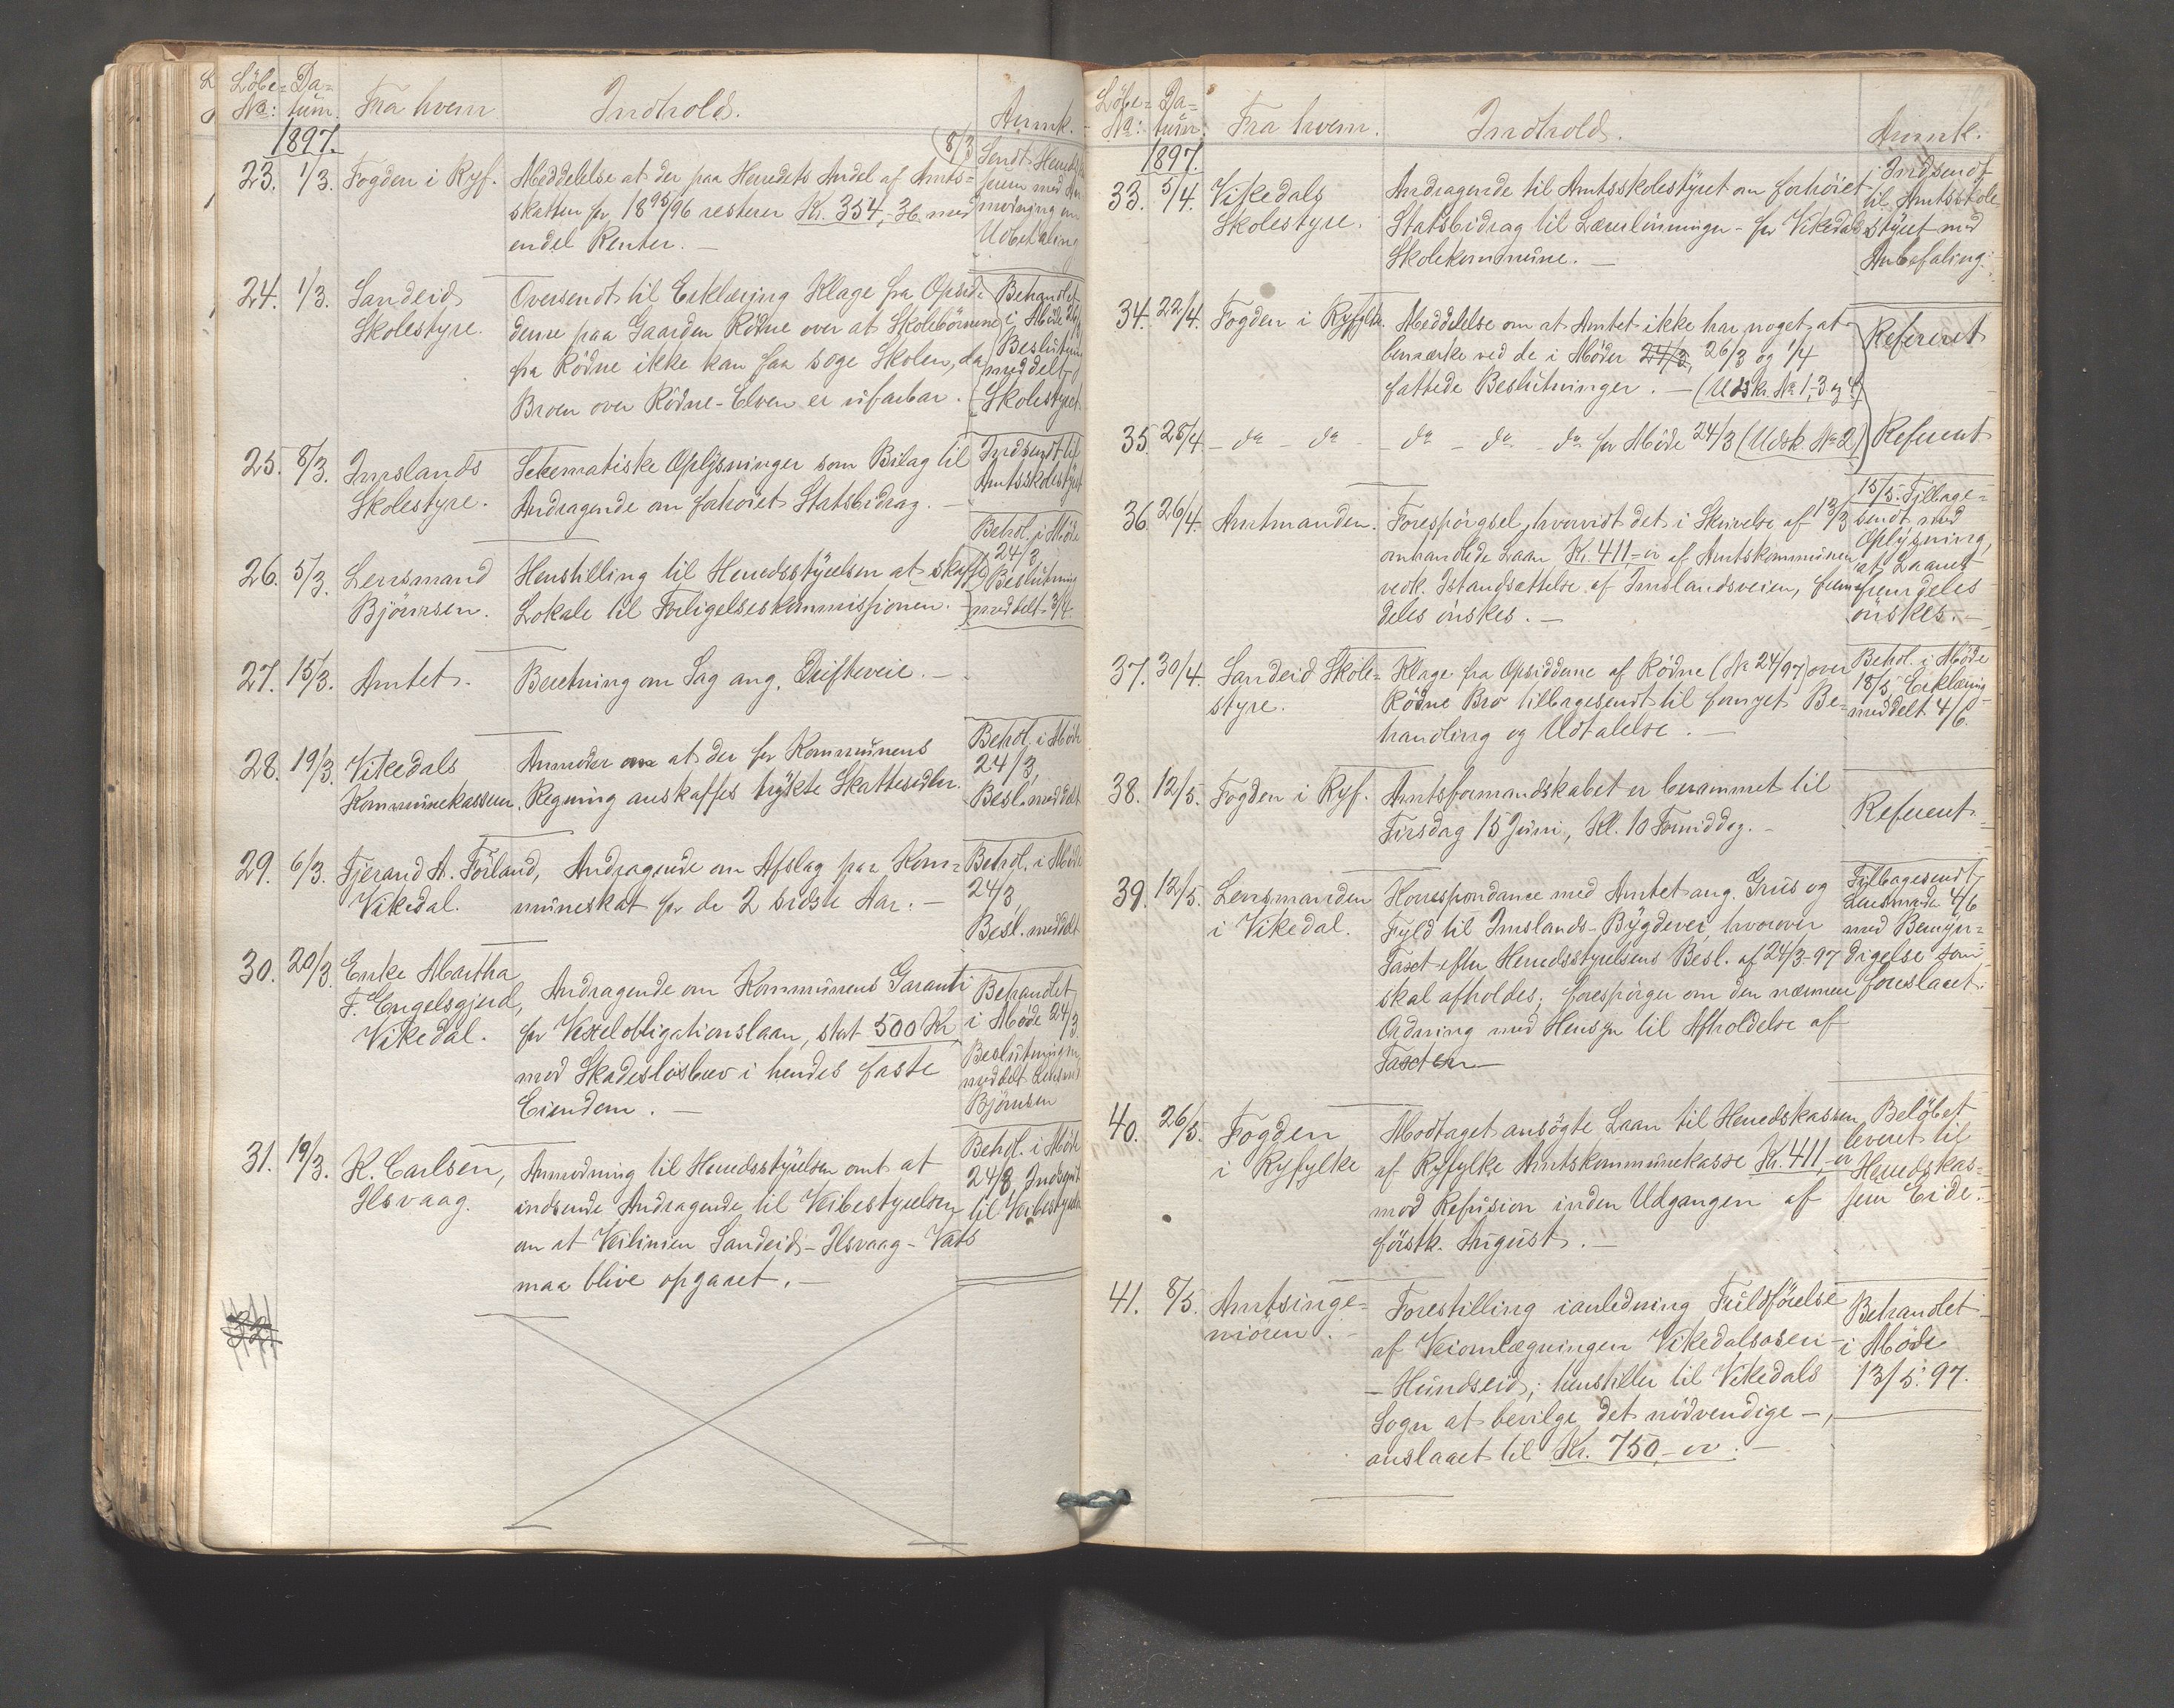 Löbe- Da- Fra hvem Indhold. Anmk.
No: tum.
1897.
23. 1/3. Fogden i Ryf. Meddelelse at der paa Herredets Andel af Amts=
skatten for 1895/96 resterer Kr. 354,36 med
endel Renter. —
8/3 Sendt Herreds
med An
modning om
Udbetaling
24. 1/3. Sandeid
Skolestyre.
Oversendt til Erklæring Klage fra Opsid-
derne paa Gaarden Rödne over at Skolebörnene
fra Rödne ikke kan faa söge Skolen, da
Broen over Rödne-Elven er ufarbar.
Behandlet
i Möde
Beslutning
meddelt
Skolestyret
25. 8/3. Imslands
Skolestyre.
Schematiske Oplysninger som Bilag til
Andragende om forhöiet Statsbidrag. —
Indsendt til
Amtsskolestyret
26. 5/3. Lensmand
Björnsen.
Henstilling til Herredsstyrelsen at skaffe
Lokale til Forligelseskommissionen.
Behdl. i Möde
24/3
Beslutning
meddelt 3/4.
27. 15/3. Amtet. Beretning om Sag ang. Drifteveie. —
28. 19/3. Vikedals
Kommunekasserer.
Anmoder om at der for Kommunens
Regning anskaffes trykte Skattesedler.
Behdl. i Möde
24/3,
Besl. meddelt
29. 6/3. Tjerand A. Förland,
Vikedal.
Andragende om Afslag paa Kom=
muneskat for de 2 sidste Aar. —
Behdl. i Möde
24/3
Besl. meddelt
30. 20/3. Enke Martha
F. Engelsgjerd,
Vikedal.
Andragende om Kommunens Garanti
for Vexelobligationslaan, stort 500 Kr
mod Skadeslösbrev i hendes faste
Eiendom. —
Behandlet
i Möde 24/3.
Beslutningen
meddelt Lensmd
Björnsen
31. 19/3. K. Carlsen,
Ilsvaag.
Anmodning til Herredsstyrelsen omt at
indsende Andragende til Veibestyrelsen
om at Veilinien Sandeid-Ilsvaag-Vats
maa blive opgaaet. —
Behdl. i Möde
24/3, Indsendt
til Veibestyrelsen
32.
Löbe- Da- Fra hvem. Indhold. Anmk.
No: tum.
1897.
33. 5/4. Vikedals
Skolestyre.
Andragende til Amtsskolestyret om forhöiet
Statsbidrag til Lærerlönninger - for Vikedals
Skolekommune. —
Indsendt
til Amtsskole
styret med
Anbefaling.
34. 22/4. Fogden i Ryfylke. Meddelelse om at Amtet ikke har noget at
bemærke ved de i Möder 24/3, 26/3 og 1/4
fattede Beslutninger. — (Udskr. No 1, 3 og 4)
Refereret
35. 28/4 - do - do - do - do - do for Möde 24/3 (Udsk. No 2) Referert
36. 26/4. Amtmanden. Forespörgsel, hvorvidt det i Skrivelse af 13/3
omhandlede Laan Kr. 411,- af Amtskommunen
vedk. Istandsættelse af Imslandsveien, frem=
deles önskes. —
15/5. Tilbage=
sendt med
Oplysning,
at Laanet
fremdeles
önskes. —
37. 30/4. Sandeid Skole=
styre.
Klage fra Opsidderne af Rödne (No 24/97) over
Rödne Bro tilbagesendt til fornyet Be=
handling og Udtalelse. —
Behdl. i Möde
18/5, Erklæring
meddelt 4/6.
38. 12/5. Fogden i Ryf. Amtsformandskabet er berammet til
Tirsdag 15 Juni, Kl. 10 Formiddag. —
Referert.
39. 12/5. Lensmanden
i Vikedal.
Korrespondance med Amtet ang. Grus og
Fyld til Imslands-Bygdevei, hvorover
Taxt efter Herredsstyrelsens Besl. af 24/3-97
skal afholdes; forespörger om den nærmere
Ordning med Hensyn til Afholdelse af
Taxten —
Tilbagesendt
Lensmanden 4/6
med Bemyn=
digelse som
foreslaaet.
40. 26/5. Fogden
i Ryfylke
Modtaget ansögte Laan til Herredskassen
af Ryfylke Amtskommunekasse Kr. 411,-
mod Refusion inden Udgangen af
förstk. August. —
Belöbet
leveret til
Herredskas=
serer Eide.
41. 8/5. Amtsinge=
niören. —
Forestilling ianledning Fuldförelse
af Veiomlægningen Vikedalsosen-
- Hundseid; henstiller til Vikedals
Sogn at bevilge det nödvendige —,
anslaaet til Kr. 750,- —
Behandlet
i Möde
13/5. 97.